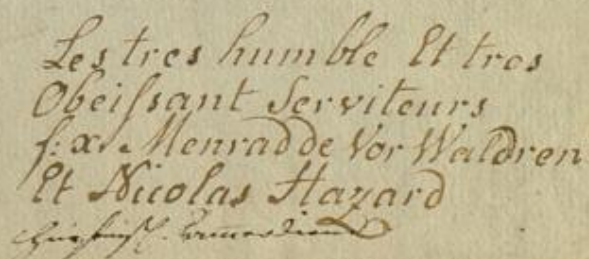 Les tres humble Et tres
Obeissant Serviteurs
f: x. Menrad de Vor Waldren
Et Nicolas Hazard